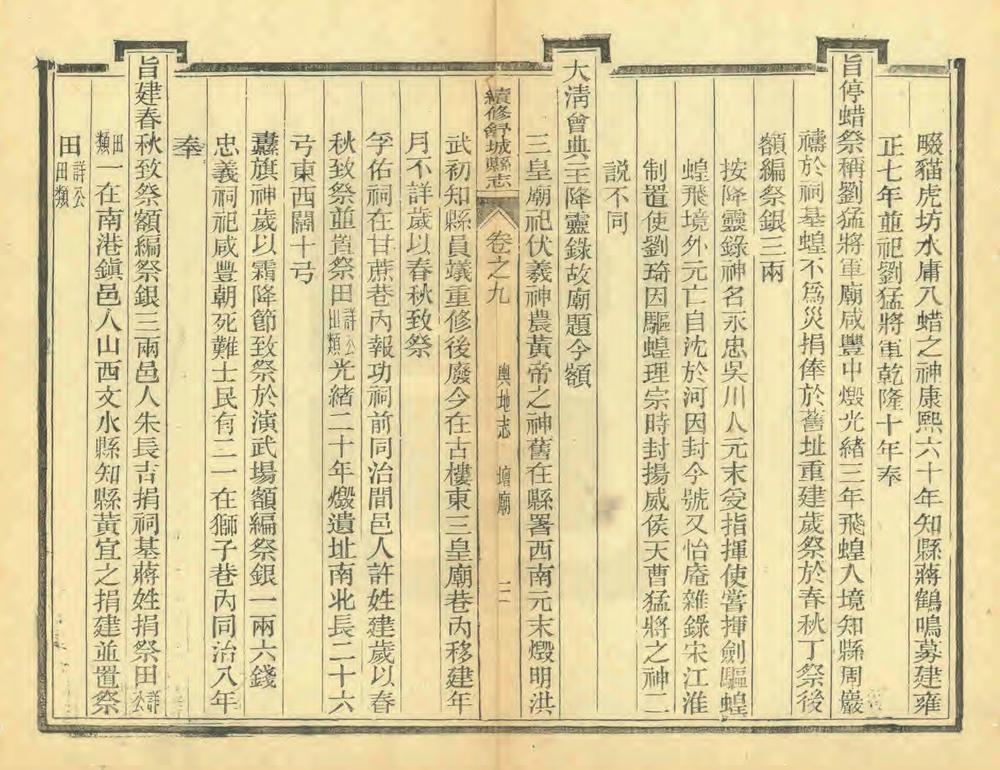 畷貓虎坊水庸八蜡之神康熙六十年知縣蔣鶴鳴募建雍
正七年並祀劉猛將軍乾隆十年奉
旨停蜡祭稱劉猛將軍廟咸豐中燬光緒三年飛蝗入境知縣周嚴
禱於祠基蝗不爲災捐俸於舊址重建歲祭於春秋丁祭後
額編祭銀三兩
按降靈錄神名承忠吳川人元末受指揮使嘗揮劍驅蝗
蝗飛境外元亡自沈於河因封今號又怡庵雜錄宋江淮
制置使劉琦因驅蝗理宗時封揚威侯天曹猛將之神二
說不同
大淸會典王降靈錄故廟題今額
三皇廟祀伏羲神農黃帝之神舊在縣署西南元末燬明洪
續修舒城縣志
卷之九
輿地志
壇廟
二
武初知縣員嶬重修後廢今在古樓東三皇廟巷內移建年
月不詳歲以春秋致祭
孚佑祠在甘蔗巷內報功祠前同治間邑人許姓建歲以春
秋致祭並置祭田詳公田類光緒二十年燬遺址南北長二十六
弓東西闊十弓
纛旗神歲以霜降節致祭於演武場額編祭銀一兩六錢
忠義祠祀咸豐朝死難士民有二一在獅子巷內同治八年
奉
旨建春秋致祭額編祭銀三兩邑人朱長吉捐祠基蔣姓捐祭田詳公
田類一在南港鎭邑人山西文水縣知縣黃宜之捐建並置祭
田詳公田類